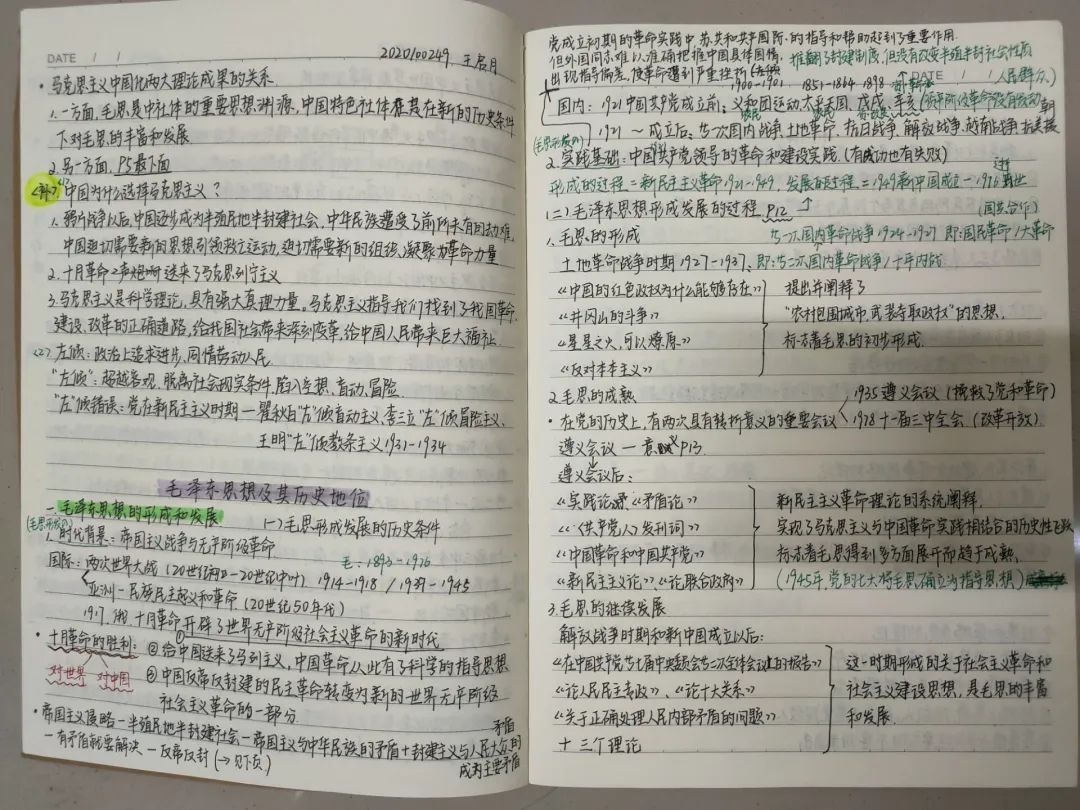 DATE / /
2020100249 王启月
·马克思主义中国化两大理论成果的关系
1.一方面,毛思是中社体的重要思想渊源,中国特色社体是在新的历史条件
下对毛思的丰富和发展
2.另一方面,P5最下面
<补>
(1)中国为什么选择马克思主义?
1.鸦片战争以后,中国逐步成为半殖民地半封建社会,中华民族遭受了前所未有的劫难,
中国迫切需要新的思想引领救亡运动,迫切需要新的组织凝聚力革命力量
2.十月革命一声炮响送来了马克思列宁主义
3.马克思主义是科学理论,具有强大真理力量。马克思主义指导我们找到了我国革命、
建设、改革的正确道路,给我国社会带来深刻变革,给中国人民带来巨大福祉
(2)左倾:政治上追求进步、同情劳动人民
"左倾":超越客观,脱离社会现实条件,陷入空想、盲动、冒险
"左"倾错误:党在新民主主义时期—瞿秋白"左"倾盲动主义、李三立"左"倾冒险主义、
王明"左"倾教条主义1931-1934
毛泽东思想及其历史地位
一、毛泽东思想的形成和发展 (一)毛思形成发展的历史条件
1.时代背景:帝国主义战争与无产阶级革命
毛:1893-1976
国际:两次世界大战 1914-1918 / 1939-1945
亚洲—民族民主起义和革命(20世纪50年代)
1917 十月革命开辟了世界无产阶级社会主义革命的新时代
·十月革命的胜利:①
②给中国送来了马列主义,中国革命从此有了科学的指导思想
对世界 对中国
③中国反帝反封建的民主革命转变为新的世界无产阶级
社会主义革命的一部分
·帝国主义侵略—半殖民地半封建社会—帝国主义与中华民族的矛盾+封建主义与人民大众的矛盾
成为主要矛盾
—有矛盾就要解决—反帝反封(→见下页)
党成立初期的革命实践中,苏共和共产国际的指导和帮助起到了重要作用
但外国同志难以准确把握中国具体国情,
出现指导偏差,使革命遭到严重挫折
推翻了封建制度,但没有改变半殖半封社会性质
DATE / /
1900-1901 1851-1864 1898
国内:1921中国共产党成立前:义和团运动、太平天国、戊戌、辛亥
1921~成立后:第一次国内战争、土地革命、抗日战争、解放战争、抗美援朝
2.实践基础:中国共产党领导的革命和建设实践(有成功也有失败)
形成的过程=新民主主义革命1921-1949,发展的过程=1949新中国成立-1976
(二)毛泽东思想形成发展的过程 P12
(国共合作)
1.毛思的形成 第一次国内革命战争1924-1927 即:国民革命/大革命
土地革命战争时期1927-1937,即:第二次国内革命战争/十年内战
《中国的红色政权为什么能够存在》
《井冈山的斗争》
《星星之火,可以燎原》
《反对本本主义》
提出并阐释了
"农村包围城市,武装夺取政权"的思想,
标志着毛思的初步形成
2.毛思的成熟
1935遵义会议(挽救了党和革命)
·在党的历史上,有两次具有转折意义的重要会议
1978十一届三中全会(改革开放)
遵义会议—意义P13
遵义会议后:
《实践论》《矛盾论》
《〈共产党人〉发刊词》
《中国革命和中国共产党》
《新民主主义论》、《论联合政府》
新民主主义革命理论的系统阐释,
实现了马克思主义与中国革命实践相结合的历史性飞跃
标志着毛思得到多方面展开而趋于成熟
(1945年,党的七大将毛思确立为指导思想)
3.毛思的继续发展
解放战争时期和新中国成立以后:
《在中国共产党第七届中央委员会第二次全体会议上的报告》
《论人民民主专政》、《论十大关系》
《关于正确处理人民内部矛盾的问题》
十三个理论
这一时期形成的关于社会主义革命和
社会主义建设思想,是毛思的丰富
和发展